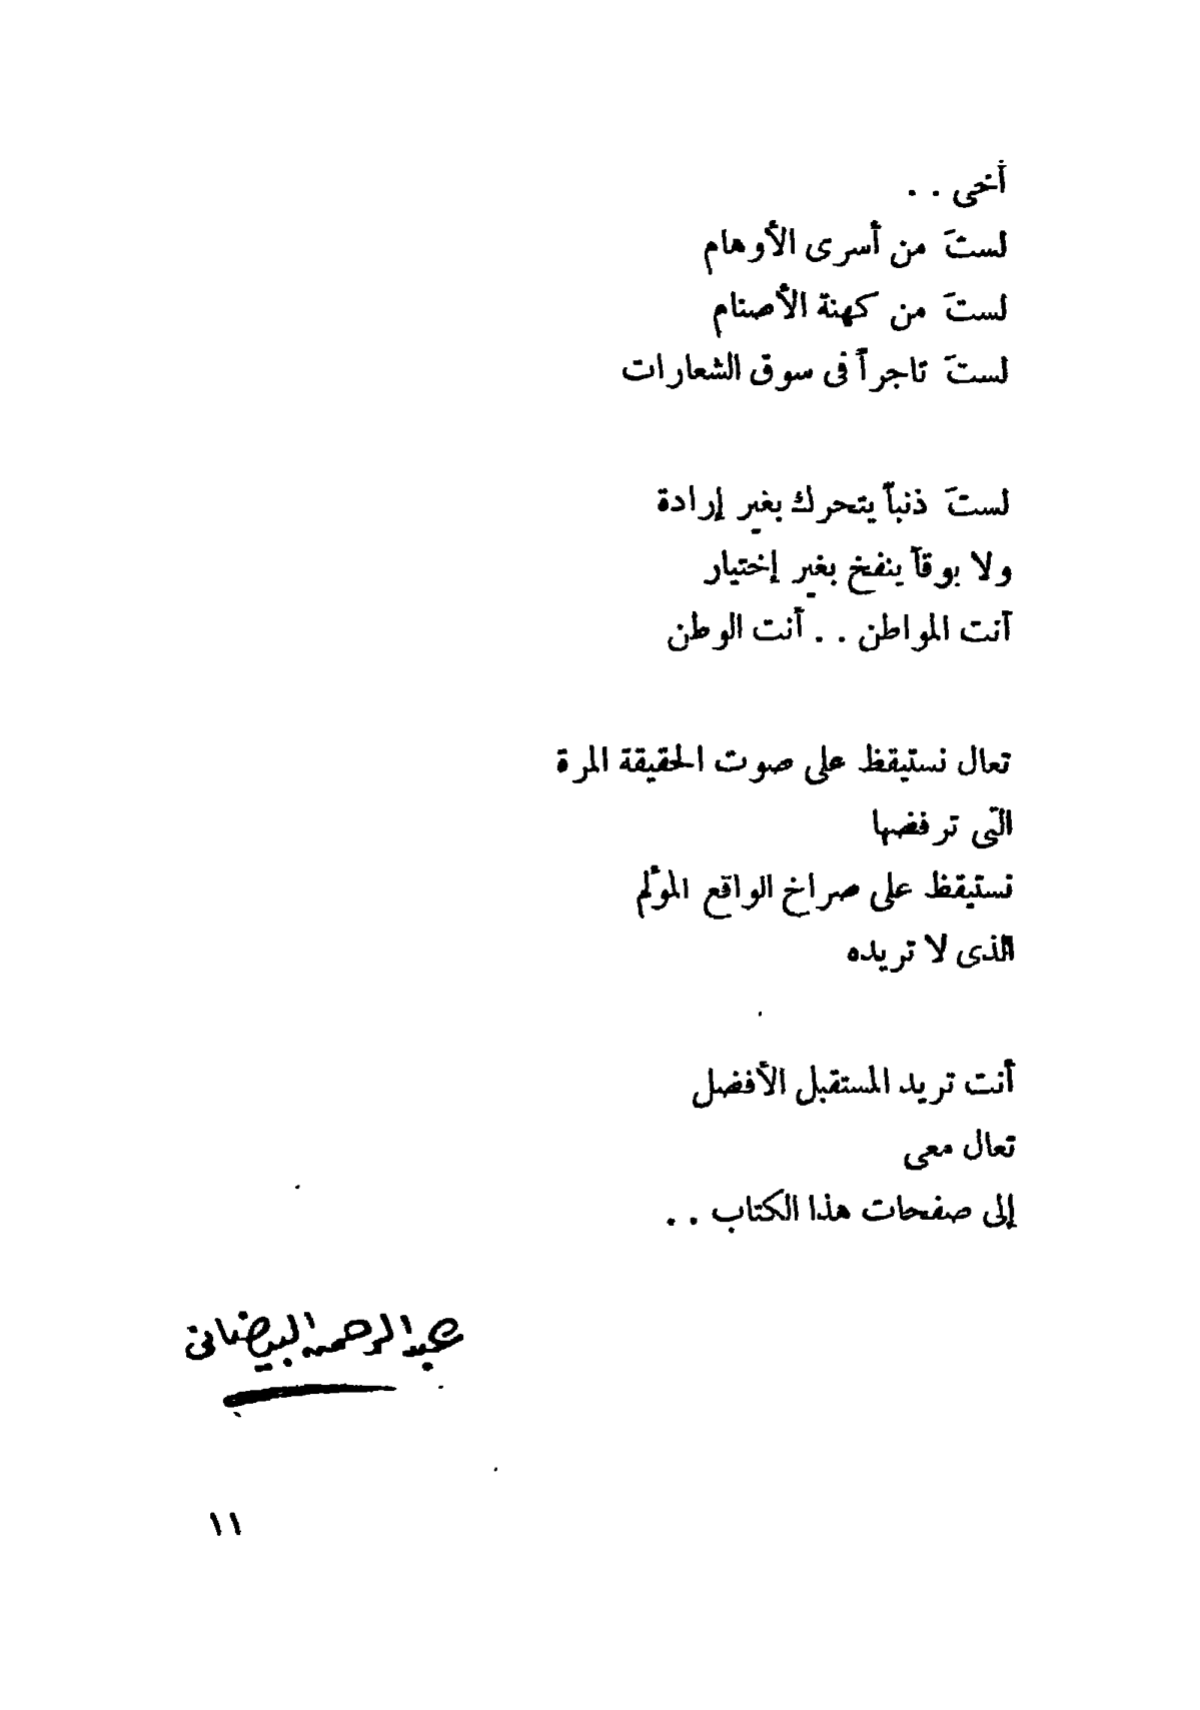 أخى . .
لستَ من أسرى الأوهام
لستَ من كهنة الأصنام
لستَ تاجراً فى سوق الشعارات
لستَ ذنباً يتحرك بغير إرادة
ولا بوقاً ينفخ بغير إختيار
أنت المواطن . . أنت الوطن
تعال نستيقظ على صوت الحقيقة المرة
التى ترفضها
نستيقظ على صراخ الواقع المؤلم
الذى لا تريده
أنت تريد المستقبل الأفضل
تعال معى
إلى صفحات هذا الكتاب . .
عبد الرحمن البيضانى
١١